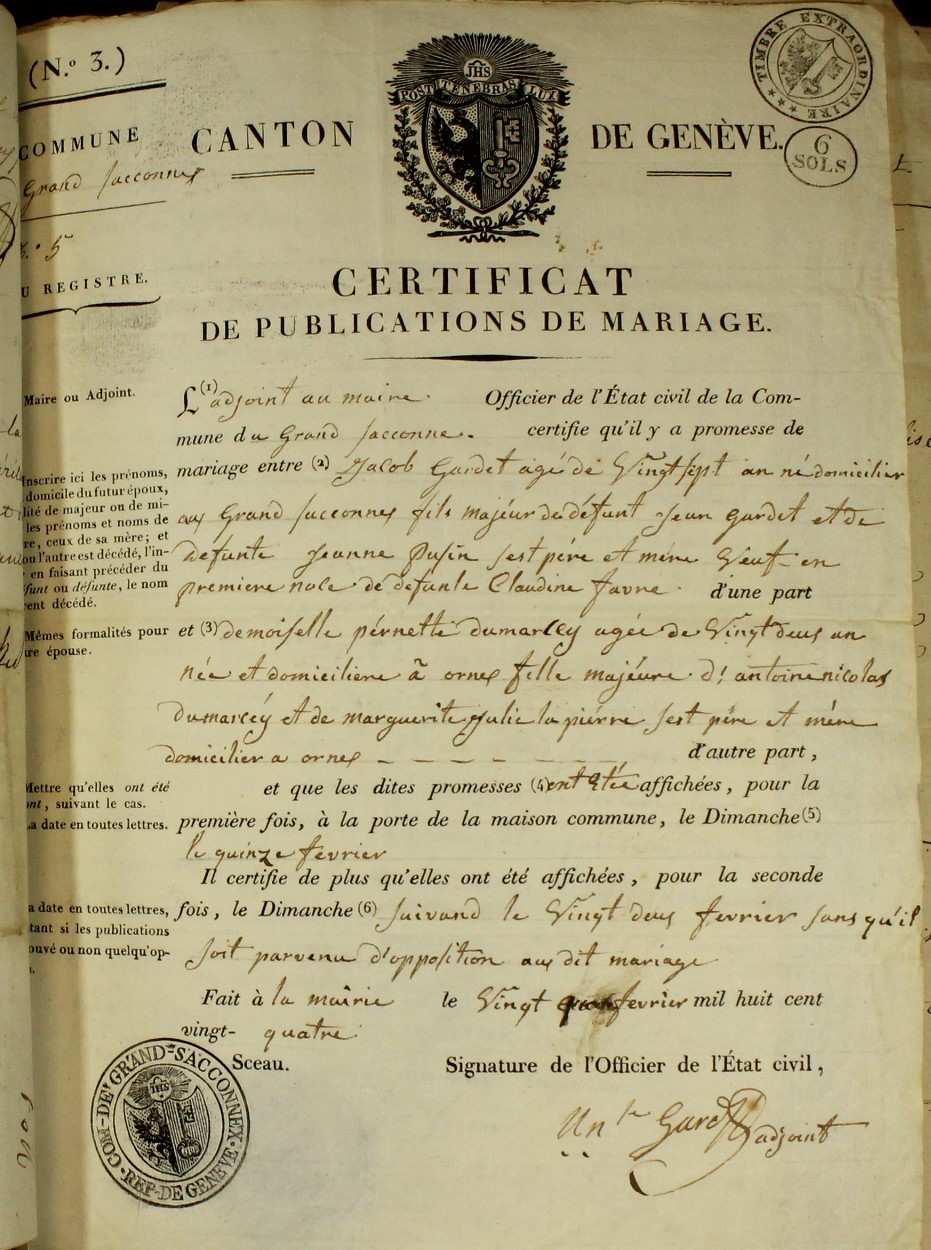 (N.º 3.)
COMMUNE
Grand Sacconnex
5
U REGISTRE.
CANTON DE GENÈVE.
JHS
POST TENEBRAS LUX
TIMBRE EXTRAORDINAIRE
6
SOLS
CERTIFICAT
DE PUBLICATIONS DE MARIAGE.
Maire ou Adjoint.
L'(1) adjoint au maire. Officier de l'État civil de la Com-
mune du Grand Sacconne. certifie qu'il y a promesse de
mariage entre (2) Jacob Gardet agé de Vingt sept an né domicilier
au Grand Sacconnex fils majeur de défunt Jean Gardet et de
defunte Jeanne Pusin sest pére et mére Veuf en
premiere noce de defunte Claudine favre. d'une part
et (3) demoiselle pérnette dumarcey agée de Vingt deus an
née et domiciliere à ornex fille majéure d! antoine nicolas
dumarcéy et de marguerite Julie la piérre sest pére et mére
domicilier a ornex d'autre part,
et que les dites promesses (4) ont étée affichées, pour la
première fois, à la porte de la maison commune, le Dimanche (5)
le quinze fevrier
Il certifie de plus qu'elles ont été affichées, pour la seconde
fois, le Dimanche (6) suivand le Vingt deus fevrier sans qu'il
soit parvenu d'opposition au dit mariage
Fait à la mairie le Vingt fevrier mil huit cent
vingt- quatre.
Sceau. Signature de l'Officier de l'État civil,
Gardet adjoint
Inscrire ici les prénoms,
domicile du futur époux,
lité de majeur ou de mi-
les prénoms et noms de
re, ceux de sa mère; et
ou l'autre est décédé, l'in-
en faisant précéder du
funt ou défunte, le nom
ent décédé.
Mêmes formalités pour
ure épouse.
Mettre qu'elles ont été
ont, suivant le cas.
La date en toutes lettres.
a date en toutes lettres,
tant si les publications
ouvé ou non quelqu'op-
COM. DE GRAND SACCONNEX. REP. DE GENEVE.
JHS